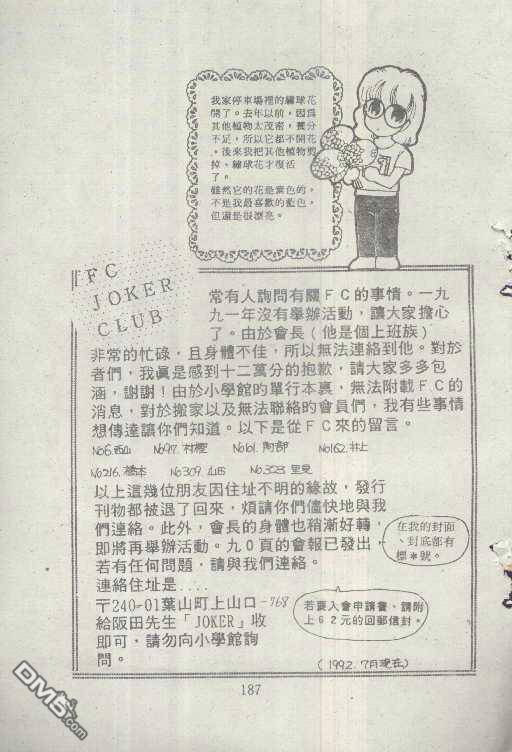 我家停車場裡的繡球花
開了。去年以前，因為
其他植物太茂密，養分
不足，所以它都不開花
，後來我把其他植物剪
掉、繡球花才復活
了。
雖然它的花是紫色的，
不是我最喜歡的藍色，
但還是很漂亮。
FC
JOKER
CLUB
常有人詢問有關ＦＣ的事情。一九
九一年沒有舉辦活動，讓大家擔心
了。由於會長（他是個上班族）
非常的忙碌，且身體不佳，所以無法連絡到他。對於
者們，我眞是感到十二萬分的抱歉，請大家多多包
涵，謝謝！由於小學館的單行本裏，無法附載ＦＣ的
消息，對於搬家以及無法聯絡的會員們，我有些事情
想傳達讓你們知道。以下是從ＦＣ來的留言。
No6.西山 No97.村樫 No161.阿部 No162.井上
No216.橋本 No309.山田 No.323 里見
以上這幾位朋友因住址不明的緣故，發行
刊物都被退了回來，煩請你們儘快地與我
們連絡。此外，會長的身體也稍漸好轉，
即將再舉辦活動。九０頁的會報已發出，
若有任何問題，請與我們連絡。
在我的封面
、封底都有
標＊號。
連絡住址是....
〒240-01葉山町上山口-768
給阪田先生「JOKER」收
即可，請勿向小學館詢
問。
若要入會申請書，請附
上６２元的回郵信封。
（1992.7月現在）
187
DM5.com